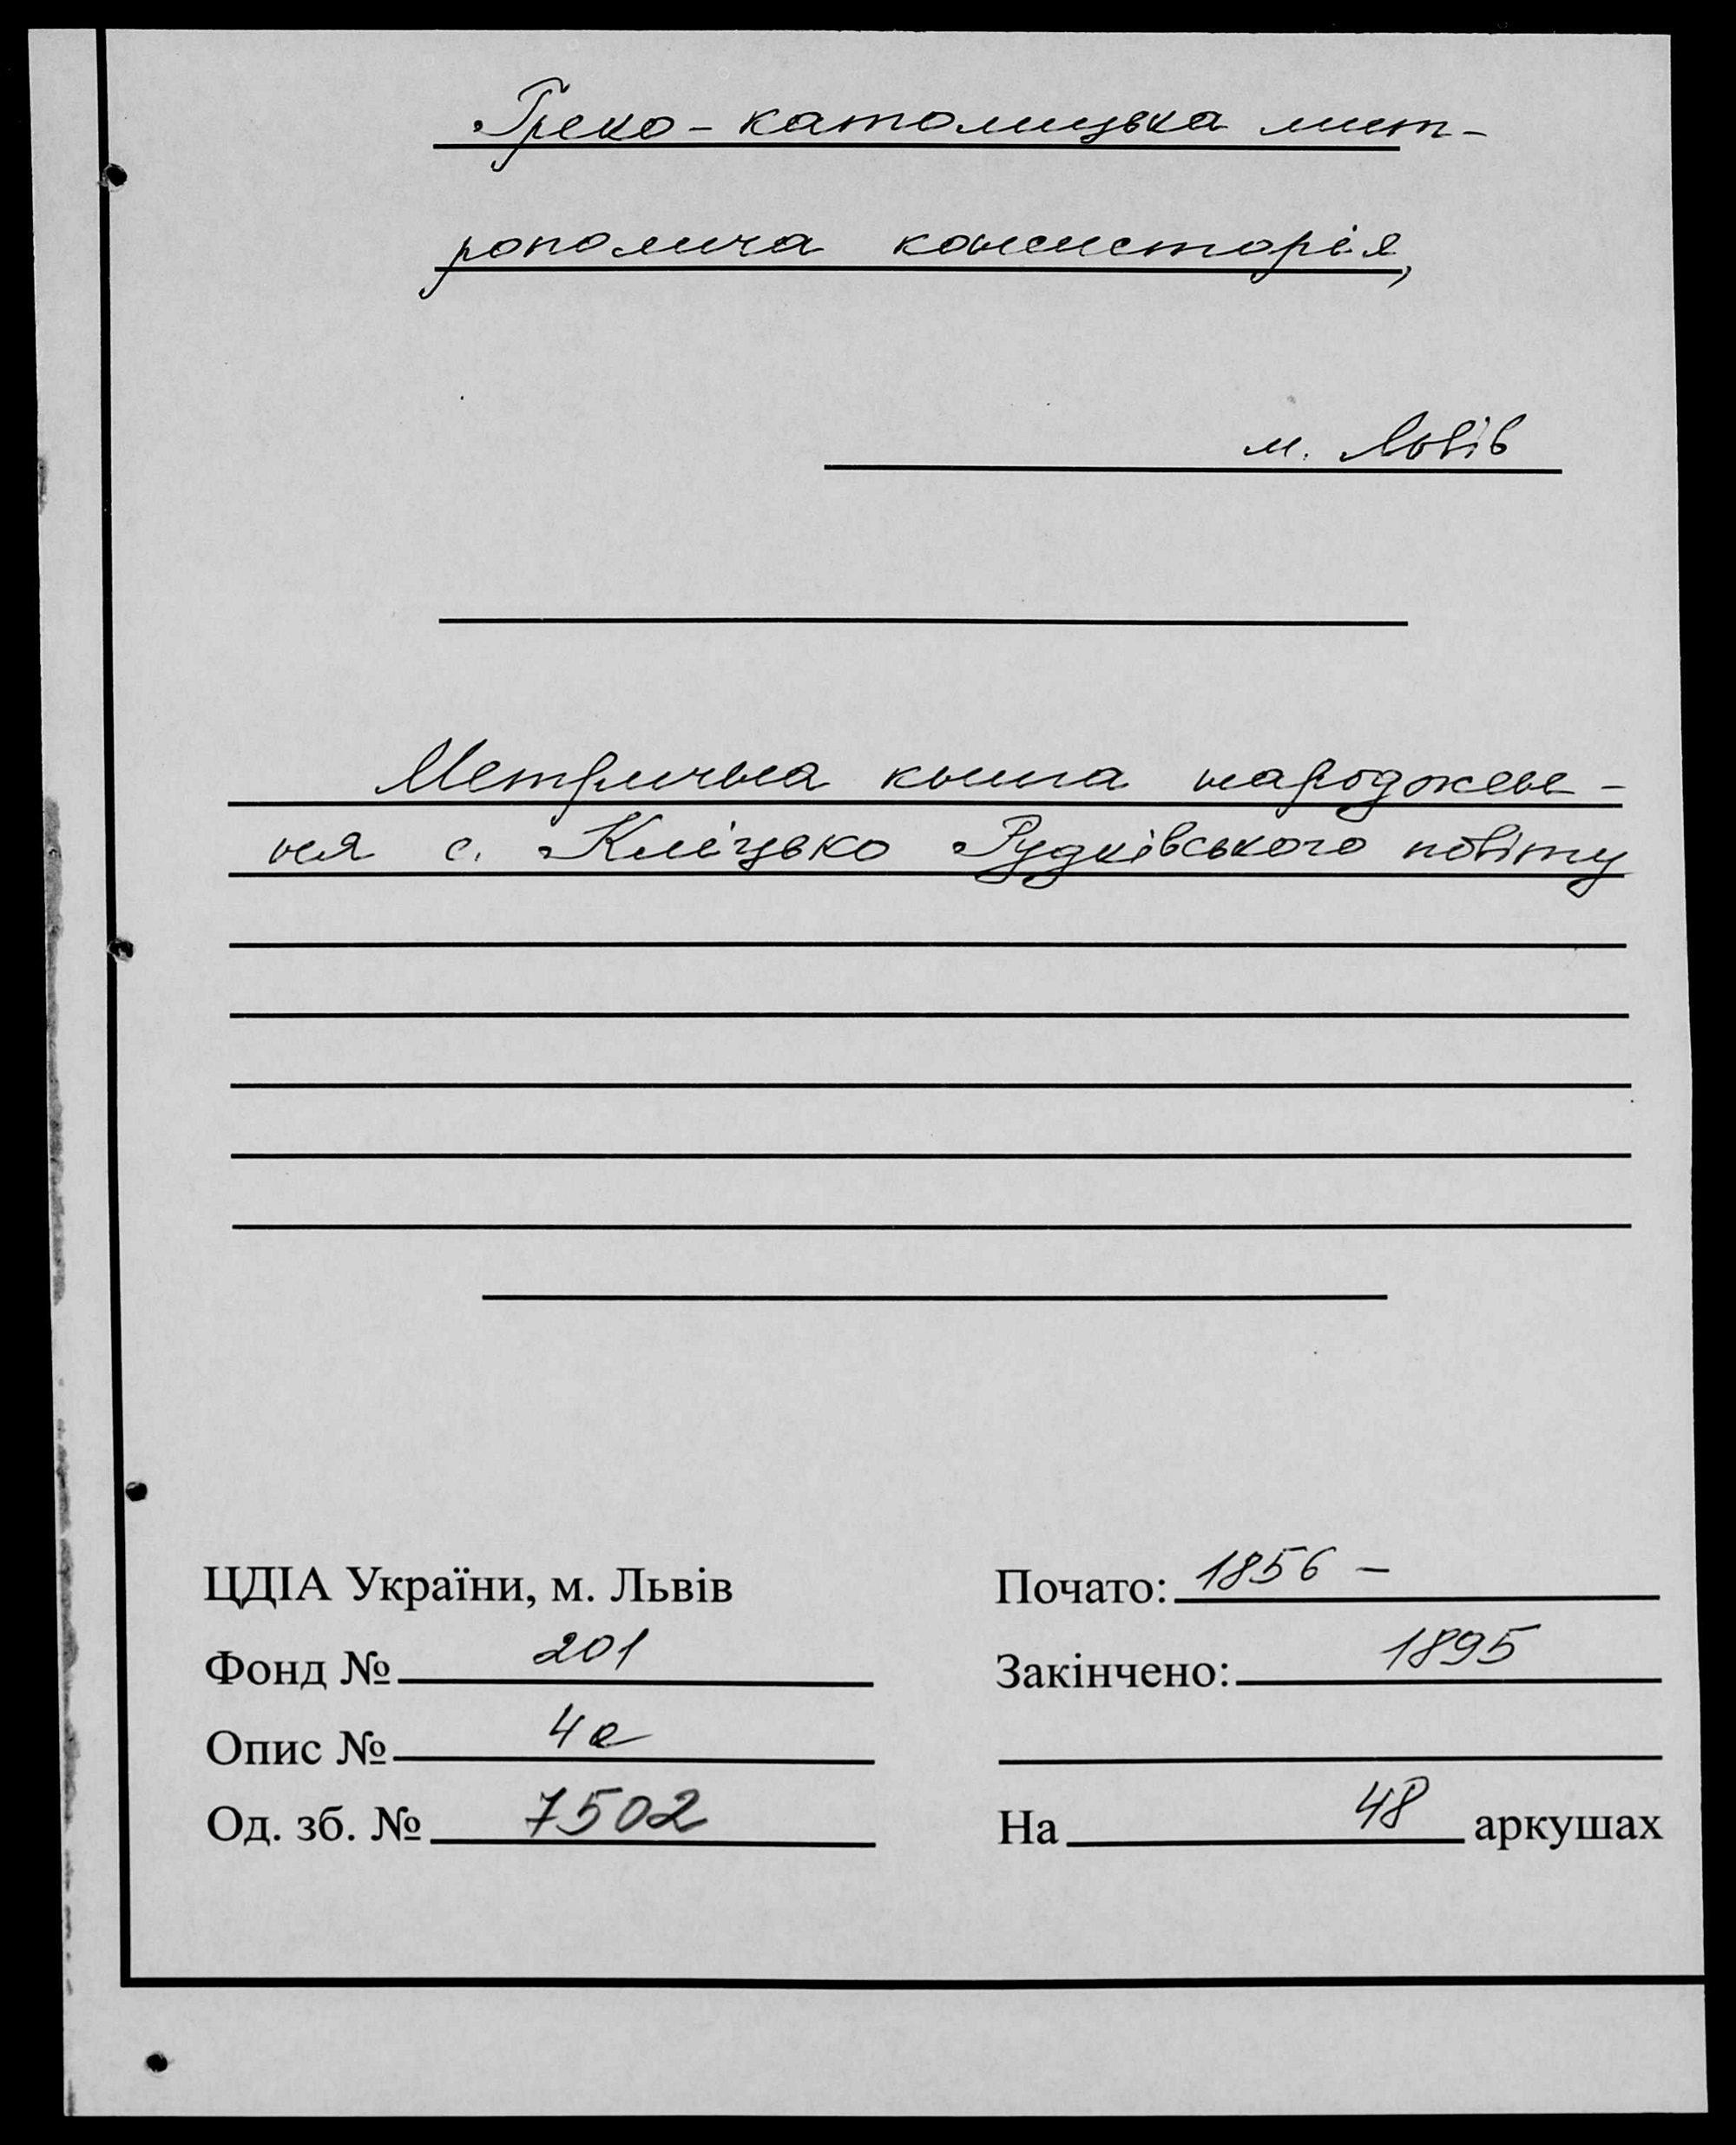 Греко-католицька мит-
рополича консисторія,
м. Львів
Метрична книга народжен-
ня с. Кліцько Рудківського повіту
ЦДІА України, м. Львів
Фонд № 201
Опис № 4а
Од. зб. № 7502
Почато: 1856 –
Закінчено: 1895
На 48 аркушах